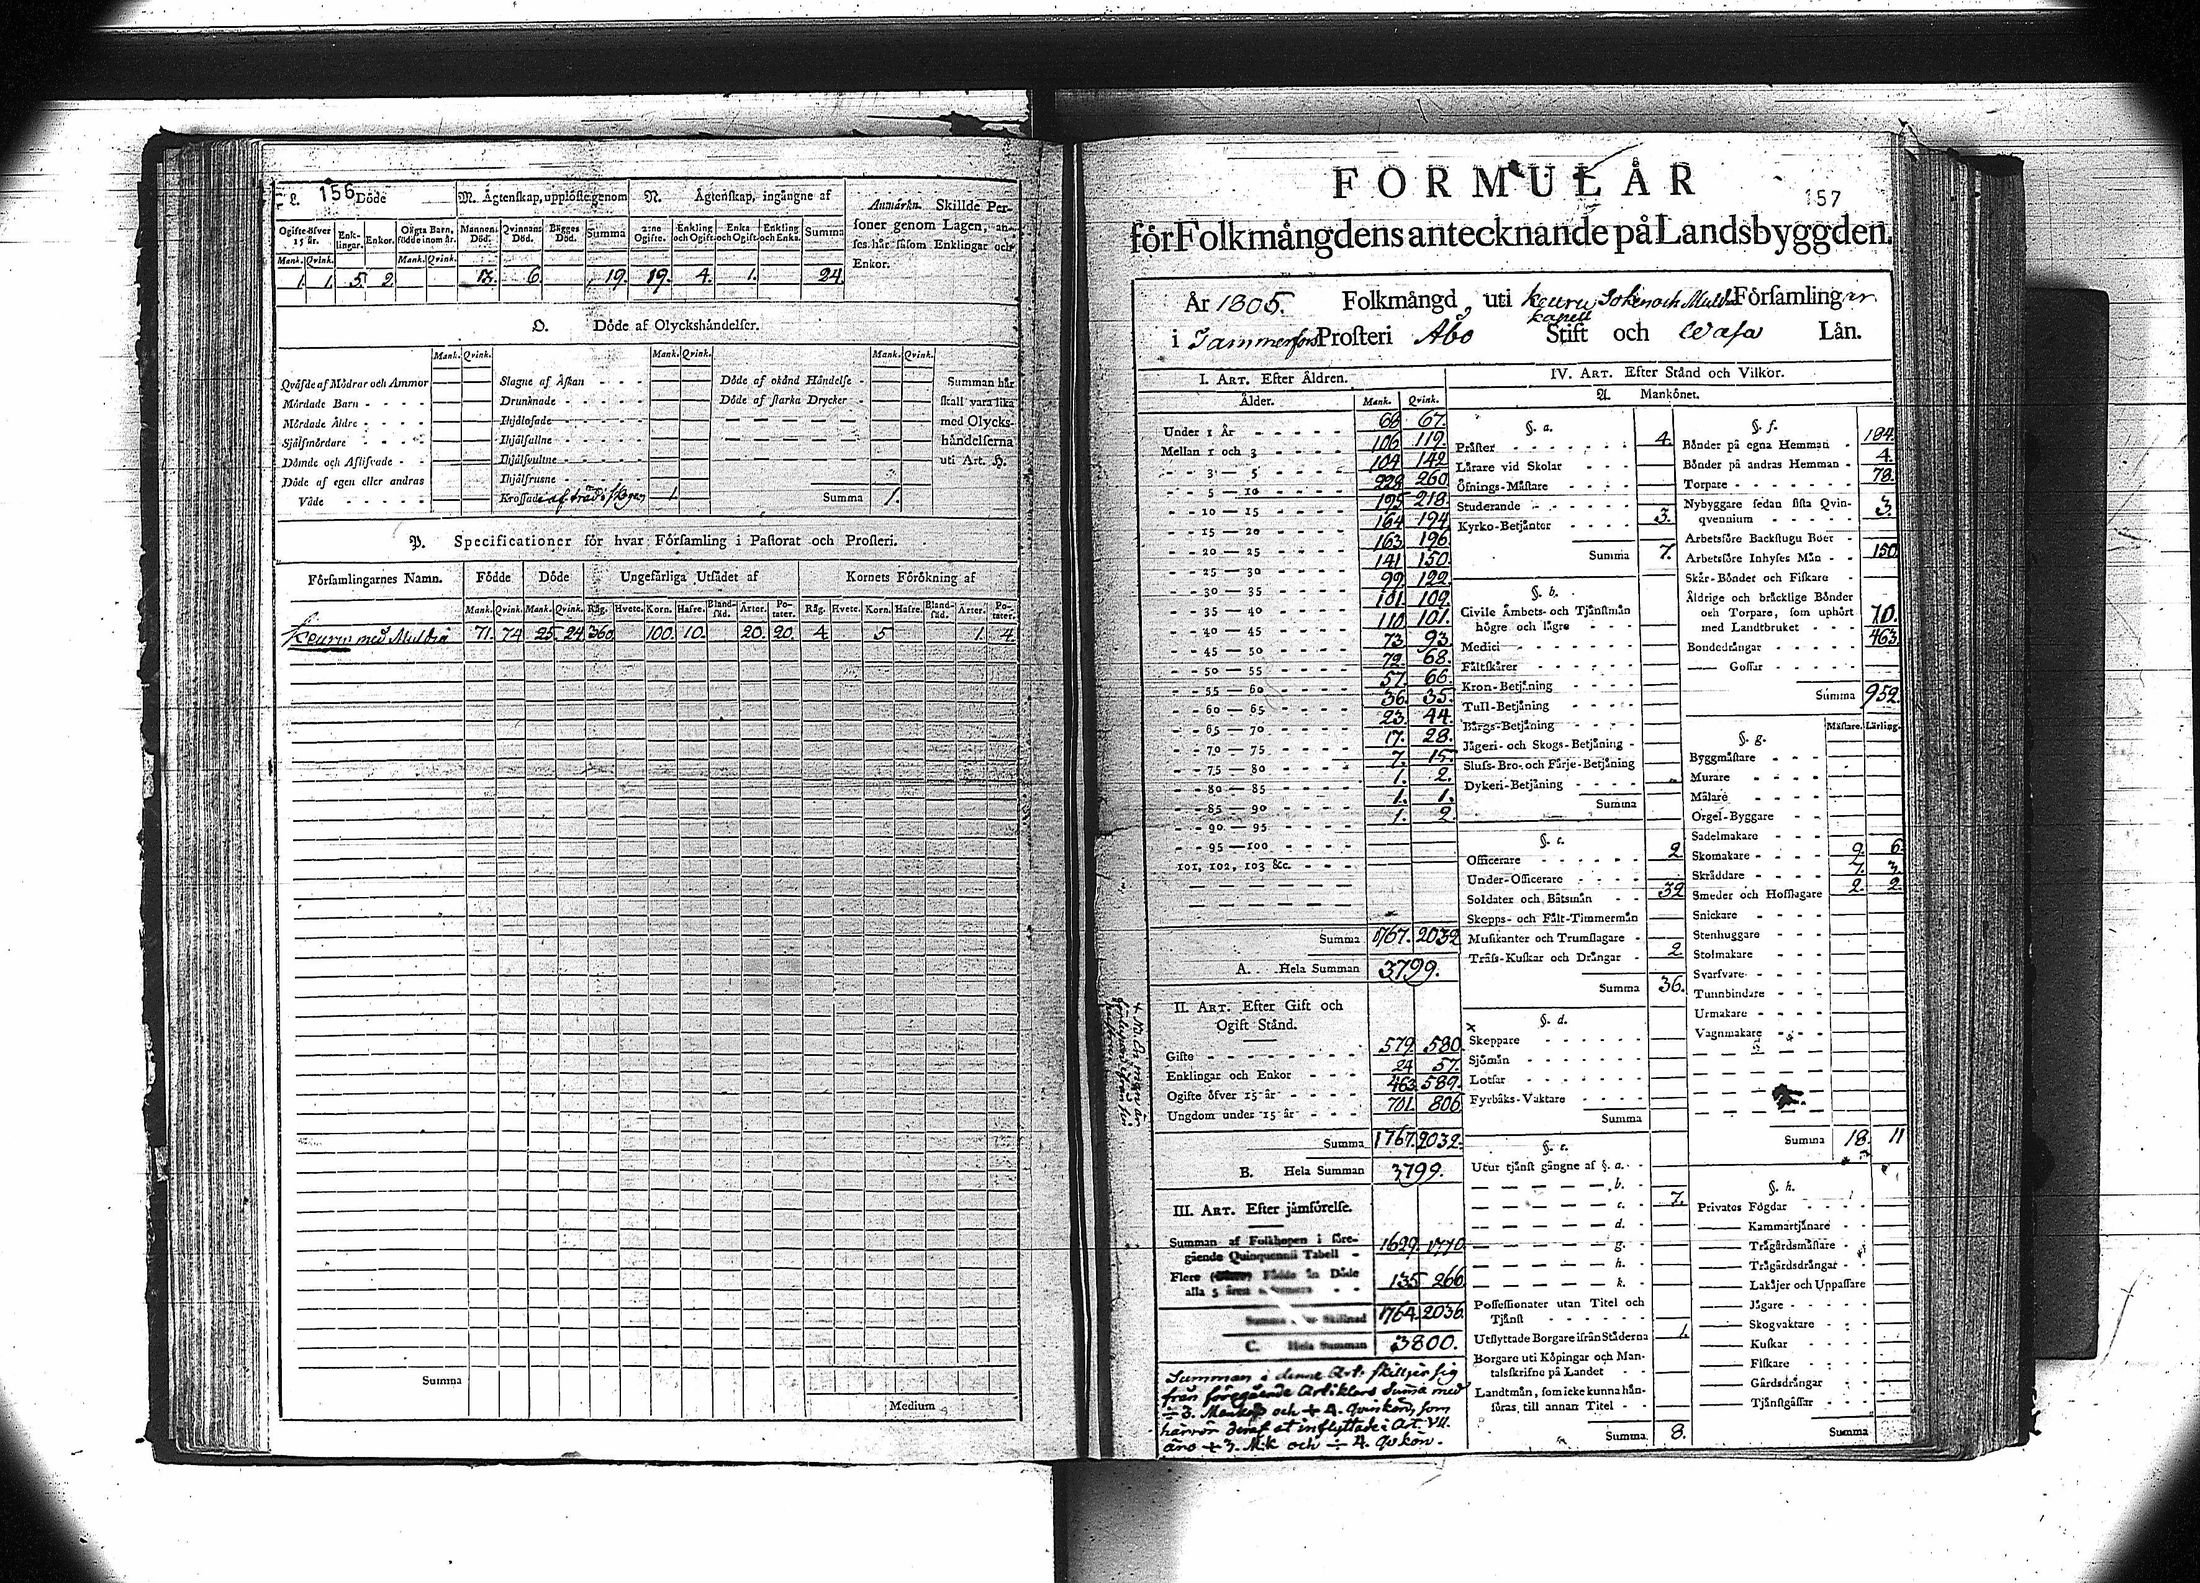 L. 156 Döde
M. Ågtenskap, upplöste genom
N. Ågtenskap, ingångne af
Anmärkn. Skillde Personer genom Lagen, anses här såsom Enklingar och Enkor.
Ogifte öfver 15 år. Enklingar. Enkor. Oägta Barn, födde inom år. Mannens Död. Qvinnans Död. Bägges Död. Summa 2:ne Ogifte. Enkling och Ogift. Enka och Ogift. Enkling och Enka. Summa
Mank. Qvink. Mank. Qvink.
1. 1. 5. 2. 13. 6. 19. 19. 4. 1. 24.
O. Döde af Olyckshändelser.
Mank. Qvink. Mank. Qvink. Mank. Qvink.
Qväfde af Mödrar och Ammor
Mördade Barn - - - -
Mördade Äldre - - - -
Sjålfmördare - - - -
Dömde och Aflifvade - -
Döde af egen eller andras
Våde - - - -
Slagne af Åskan - - -
Drunknade - - - -
Ihjälosade - - - -
Ihjälfallne - - - -
Ihjälsvultne - - - -
Ihjälfrusne - - - -
Krossade af träd i skogen 1.
Döde af okänd Händelse -
Döde af starka Drycker -
Summa 1.
Summan här
skall vara lika
med Olycks-
händelserna
uti Art. H.
P. Specificationer för hvar Församling i Pastorat och Prosteri.
Församlingarnes Namn. Födde Döde Ungefärliga Utsädet af Kornets Förökning af
Mank. Qvink. Mank. Qvink. Råg. Hvete. Korn. Hafre. Blandsäd. Ärter. Potater. Råg. Hvete. Korn. Hafre. Blandsäd. Ärter. Potater.
Keuru med Multia 71. 74 25 24 360 100. 10. 20. 20. 4. 5 1. 4.
Summa
Medium
FORMULÅR
157
för Folkmångdens antecknande på Landsbyggden.
År 1805. Folkmångd, uti Keuru Soken och Multia Församling ar
kapell
i Tammerfors Prosteri Åbo Stift och Wasa Län.
I. ART. Efter Åldren.
Ålder. Mank. Qvink.
Under 1 År - - - - - 68 67.
Mellan 1 och 3 - - - - 106 119.
- - 3 — 5 - - - - 104 142
- - 5 — 10 - - - - 228 260
- - 10 — 15 - - - - 195 218.
- - 15 — 20 - - - - 164 194
- - 20 — 25 - - - - 163 196
- - 25 — 30 - - - - 141 150.
- - 30 — 35 - - - - 99. 122.
- - 35 — 40 - - - - 101. 109.
- - 40 — 45 - - - - 110 101.
- - 45 — 50 - - - - 73. 93.
- - 50 — 55 - - - - 72. 68.
- - 55 — 60 - - - - 57. 66.
- - 60 — 65 - - - - 36. 35.
- - 65 — 70 - - - - 23. 44.
- - 70 — 75 - - - - 17. 28.
- - 75 — 80 - - - - 7. 15.
- - 80 — 85 - - - - 1. 2.
- - 85 — 90 - - - - 1. 1.
- - 90 — 95 - - - - 1. 2
- - 95 — 100 - - - -
101, 102, 103 &c. - - -
Summa 1767. 2032
A. Hela Summan 3799.
II. ART. Efter Gift och
Ogift Stånd.
Gifte - - - - - - - 579. 580.
Enklingar och Enkor - - - 24 57.
Ogifte öfver 15 år - - - - 463. 589.
Ungdom under 15 år - - - 701. 806
Summa 1767. 2032.
B. Hela Summan 3799.
III. ART. Efter jämförelse.
Summan af Folkhopen i föregående Quinquennii Tabell - 1629. 1770.
Flere Födde än Döde
alla 5 åren 135 266
Summa Skillnad 1764. 2036
C. Hela Summan 3800.
Summan i denne Art. skilljer sig
från föregående Artiklars Summa med
÷ 3. Mank. och + 4. Qvinkön, som
härrör deraf at inflyttade i Art. VII.
äro + 3. M.k och ÷ 4. Qv.kön.
IV. ART. Efter Stånd och Vilkor.
A. Mankönet.
§. a.
Präster - - - - - - 4.
Lärare vid Skolar - - -
Öfnings-Mästare - - - -
Studerande - - - - -
Kyrko-Betjänter - - - - 3.
Summa 7.
§. b.
Civile Ämbets- och Tjänstmän
högre och lägre - - -
Medici - - - - -
Fältskärer - - - - -
Kron-Betjäning - - - -
Tull-Betjäning - - - -
Bärgs-Betjäning - - - -
Jägeri- och Skogs-Betjäning -
Sluss- Bro- och Färje-Betjäning
Dykeri-Betjäning - - - -
Summa
§. c.
Officerare - - - - - - 2
Under-Officerare - - - -
Soldater och Båtsmän - - 32
Skepps- och Fält-Timmermän
Musikanter och Trumslagare -
Träss-Kuskar och Drängar - 2
Summa 36.
§. d.
Skeppare - - - - - -
Sjömän - - - - - -
Lotsar - - - - - -
Fyrbåks-Vaktare - - - -
Summa
§. e.
Utur tjänst gångne af §. a. -
— — — — — b. -
— — — — — c. - 7.
— — — — — d. -
— — — — — g. -
— — — — — h. -
— — — — — k. -
Possessionater utan Titel och
Tjänst - - - - - -
Utflyttade Borgare ifrån Städerna 1.
Borgare uti Köpingar och Mantalsskrifne på Landet - -
Landtmän, som icke kunna hänföras till annan Titel - -
Summa 8.
§. f.
Bönder på egna Hemman - 184.
Bönder på andras Hemman - 4.
Torpare - - - - - - 78.
Nybyggare sedan sista Qvinqvennium - - - - 3.
Arbetsföre Backstugu Boer -
Arbetsföre Inhyses Män - - 150
Skär-Bönder och Fiskare -
Äldrige och bräcklige Bönder
och Torpare, som uphört
med Landtbruket - - - 70.
Bondedrängar - - - - - 463
—— Gossar - - - -
Summa 952.
Mästare. Lärling.
§. g.
Byggmästare - - -
Murare - - - -
Målare - - - -
Orgel-Byggare - -
Sadelmakare - -
Skomakare - - - - 9. 6
Skräddare - - - 7. 3.
Smeder och Hofslagare 2. 2.
Snickare - - - -
Stenhuggare - -
Stolmakare - -
Svarfvare - - -
Tunnbindare - -
Urmakare - - -
Vagnmakare - - -
Summa 18. 11
§. h.
Privates Fogdar - - - -
—— Kammartjänare - -
—— Trägårdsmästare - -
—— Trägårdsdrängar - -
—— Lakäjer och Uppassare
—— Jägare - - - - -
—— Skogvaktare - - -
—— Kuskar - - - -
—— Fiskare - - - -
—— Gårdsdrängar - -
—— Tjänstgåssar - - -
Summa